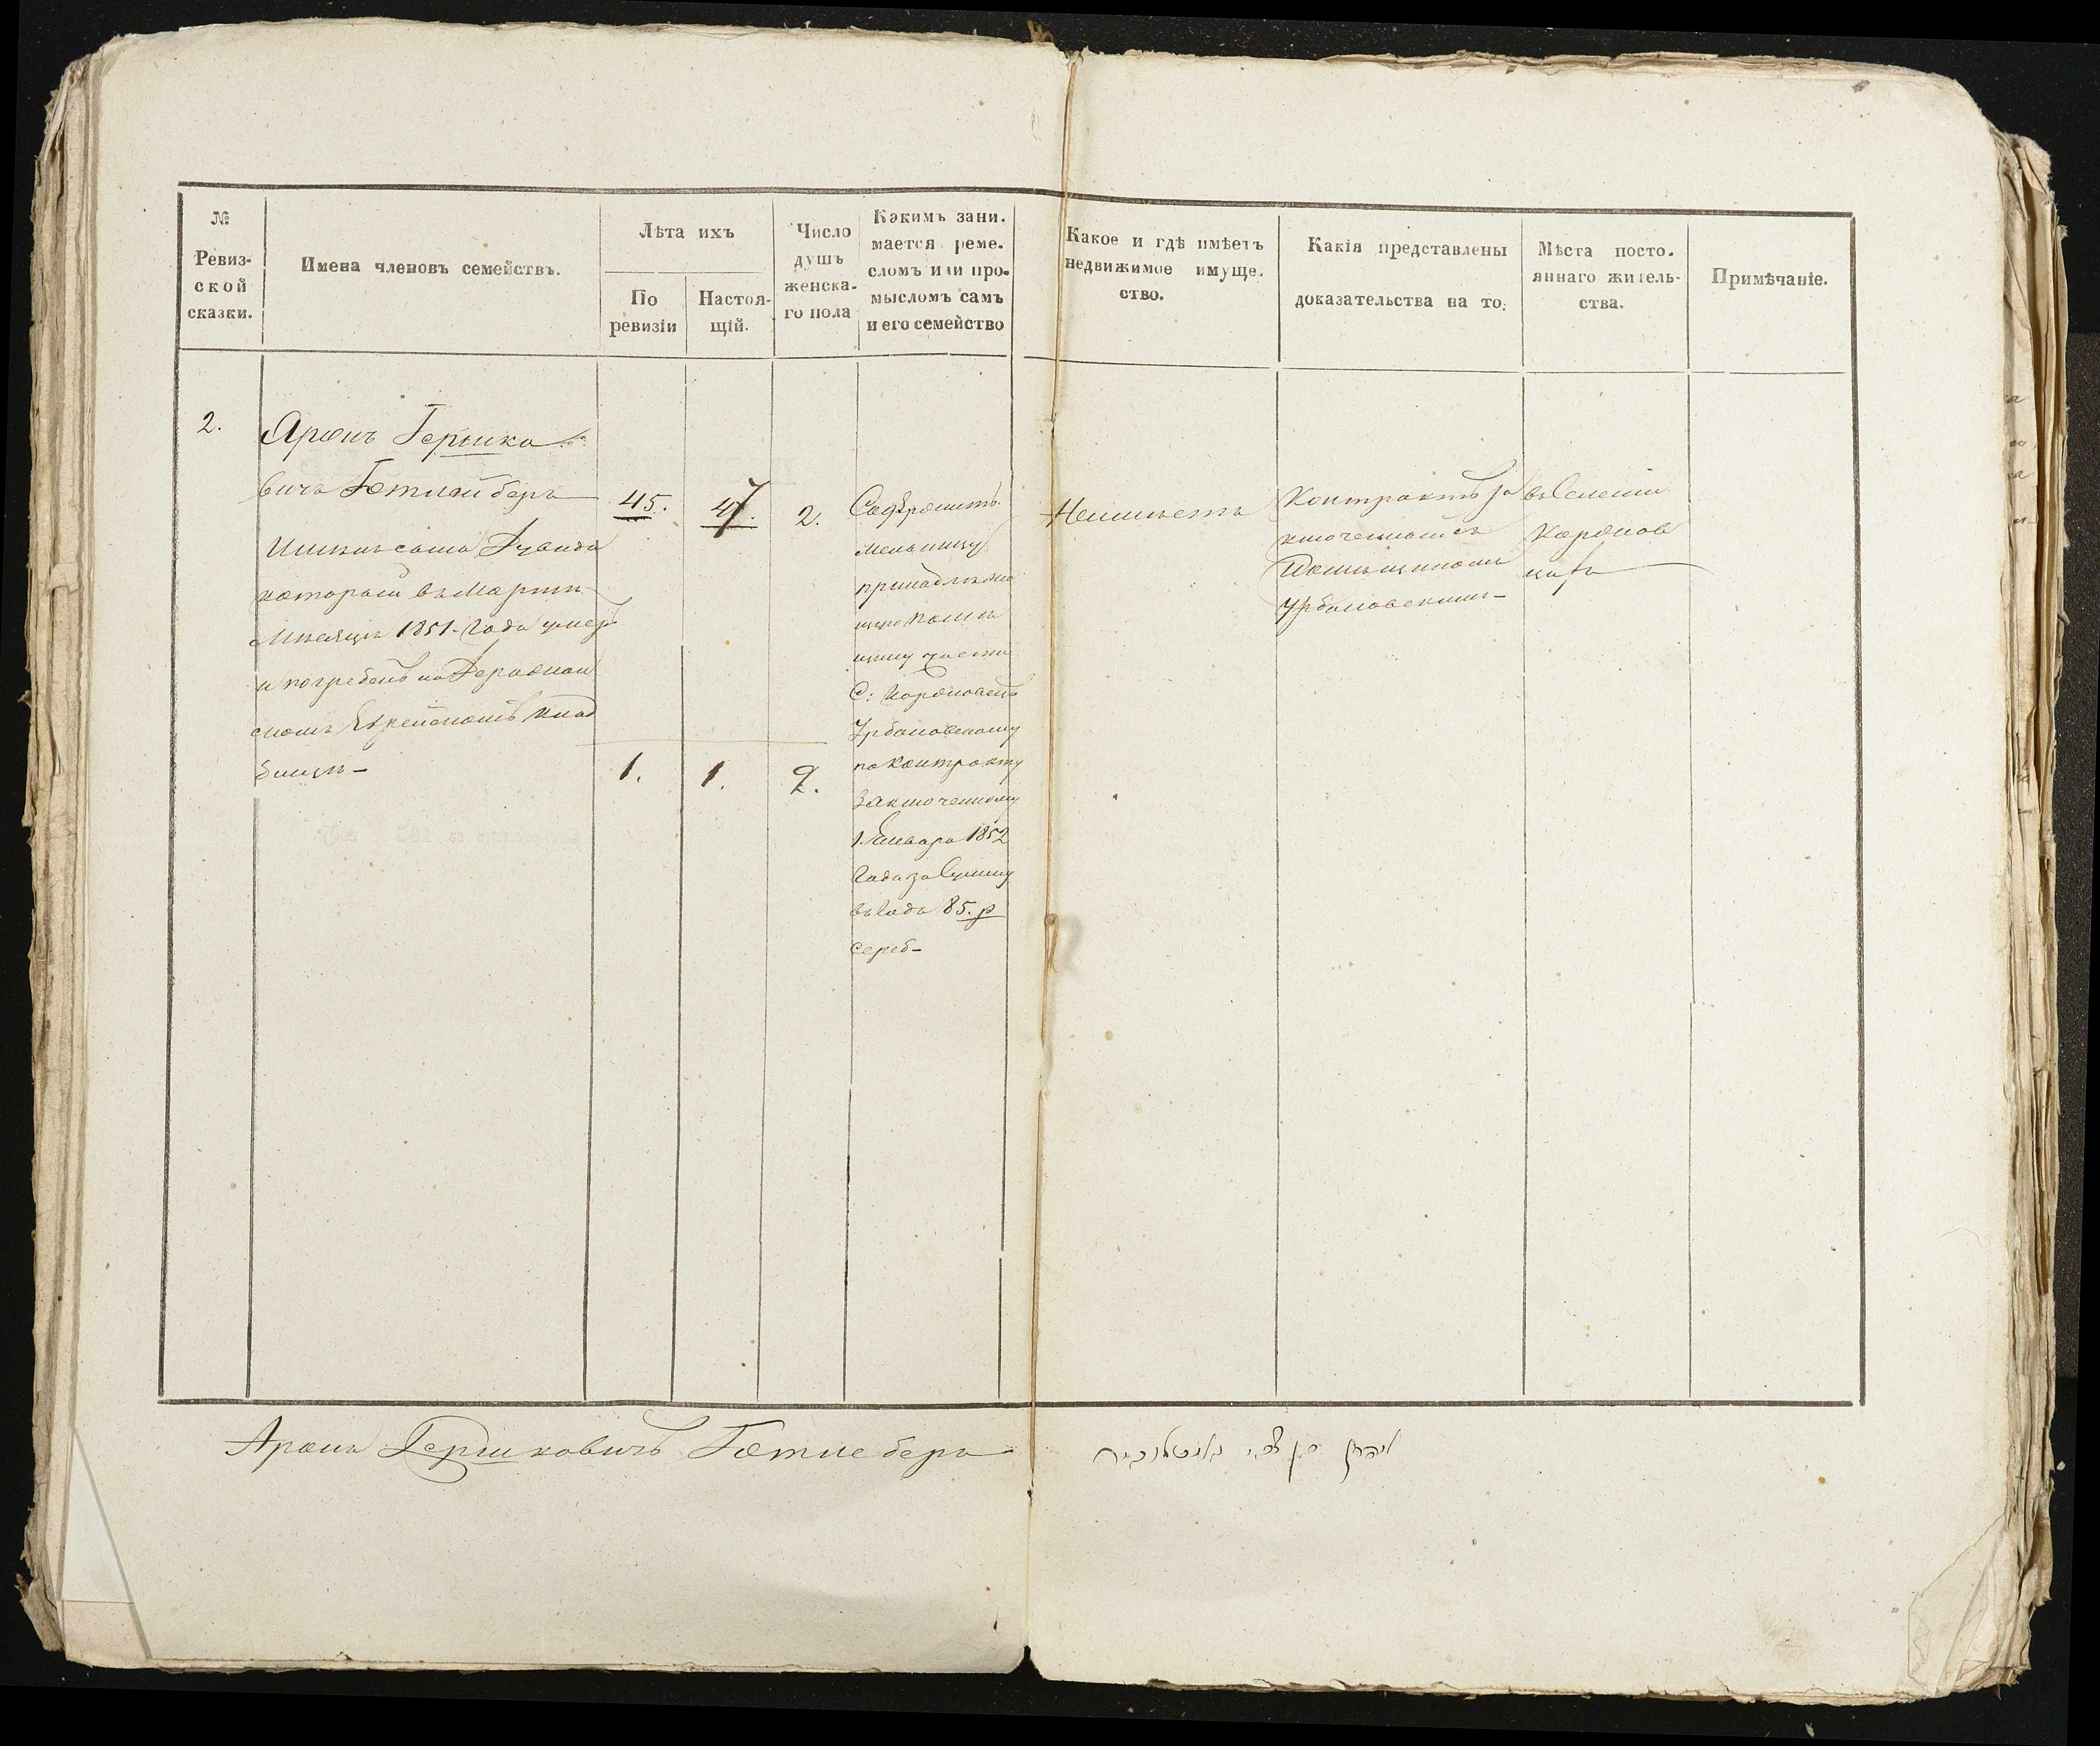 №
Ревиз-
ской
сказки.
Имена членовъ семействъ.
Лѣта ихъ
По
ревизіи
Настоя-
щій.
Число
душъ
женска-
го пола
Какимъ зани-
мается реме-
сломъ или про-
мысломъ самъ
и его семейство
Какое и гдѣ имѣетъ
недвижимое имуще-
ство.
Какія представлены
доказательства на то:
Мѣста посто-
яннаго житель-
ства.
Примѣчаніе.
2.
Аронъ Гершко
вичъ
имѣлъ сына
который въ Мартѣ
Мѣсяцѣ 1851. Года умеръ
и погребенъ на
скомъ Еврейскомъ клад
бищѣ-
45.
47.
2.
1.
1.
2.
Содержитъ
мельницу
принадлежа
щую помѣ
щику части
С:
Урбановскому
по контракту
заключенному
1 Января 1852
Года за Сумму
въ Годъ 85. р
сереб-
Неимѣетъ
Контрактъ за
ключенный съ
Помѣщикомъ
Урбановскимъ-
въ Селении
Аронъ Гершковичъ
אהרן בן צבי